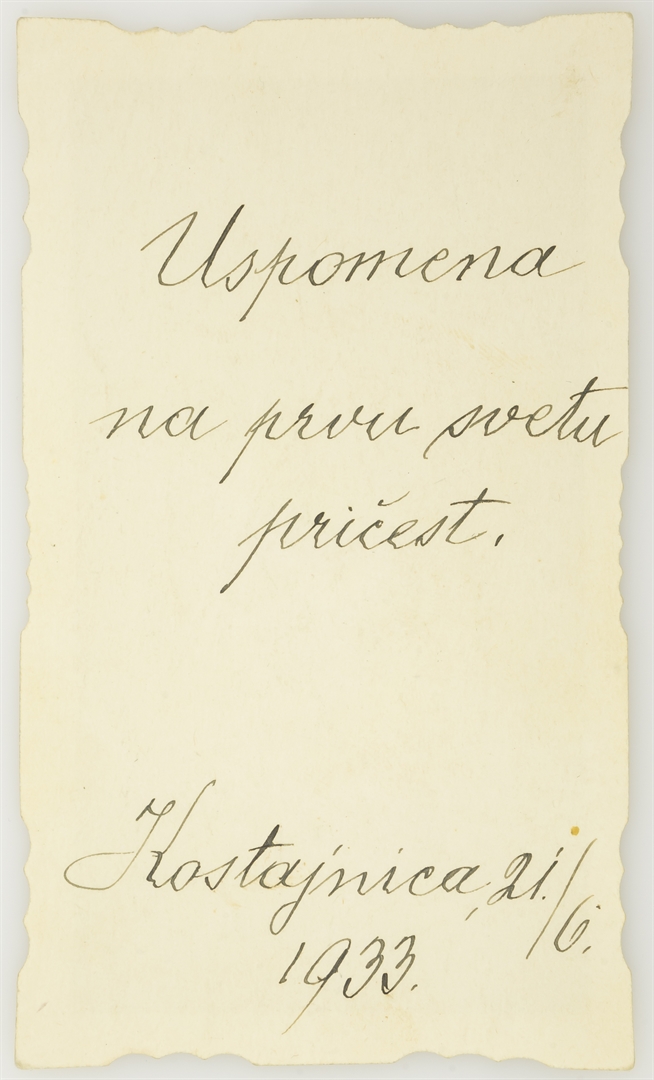 Uspomena
na prvu svetu
pričest.
Kostajnica, 21./6.
1933.